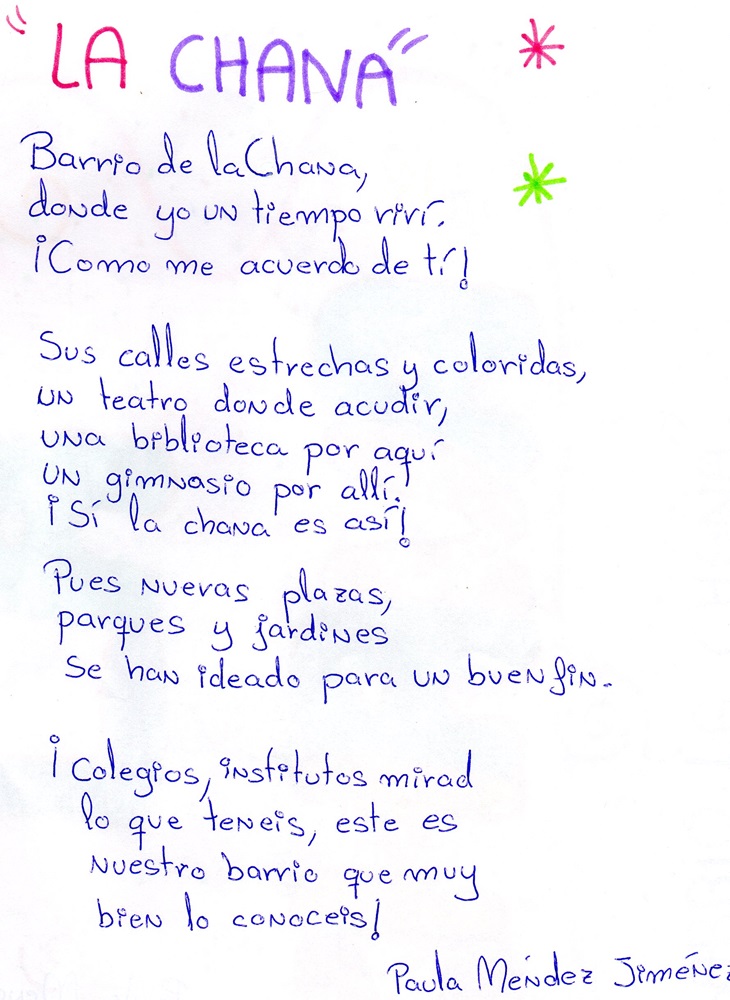 "LA CHANA"
Barrio de la Chana,
donde yo un tiempo viví.
¡Como me acuerdo de tí!
Sus calles estrechas y coloridas,
un teatro donde acudir,
una biblioteca por aquí
un gimnasio por allí.
¡Sí la chana es así!
Pues nuevas plazas,
parques y jardines
se han ideado para un buen fin.
¡Colegios, institutos mirad
lo que teneis, este es
nuestro barrio que muy
bien lo conoceis!
Paula Méndez Jiménez